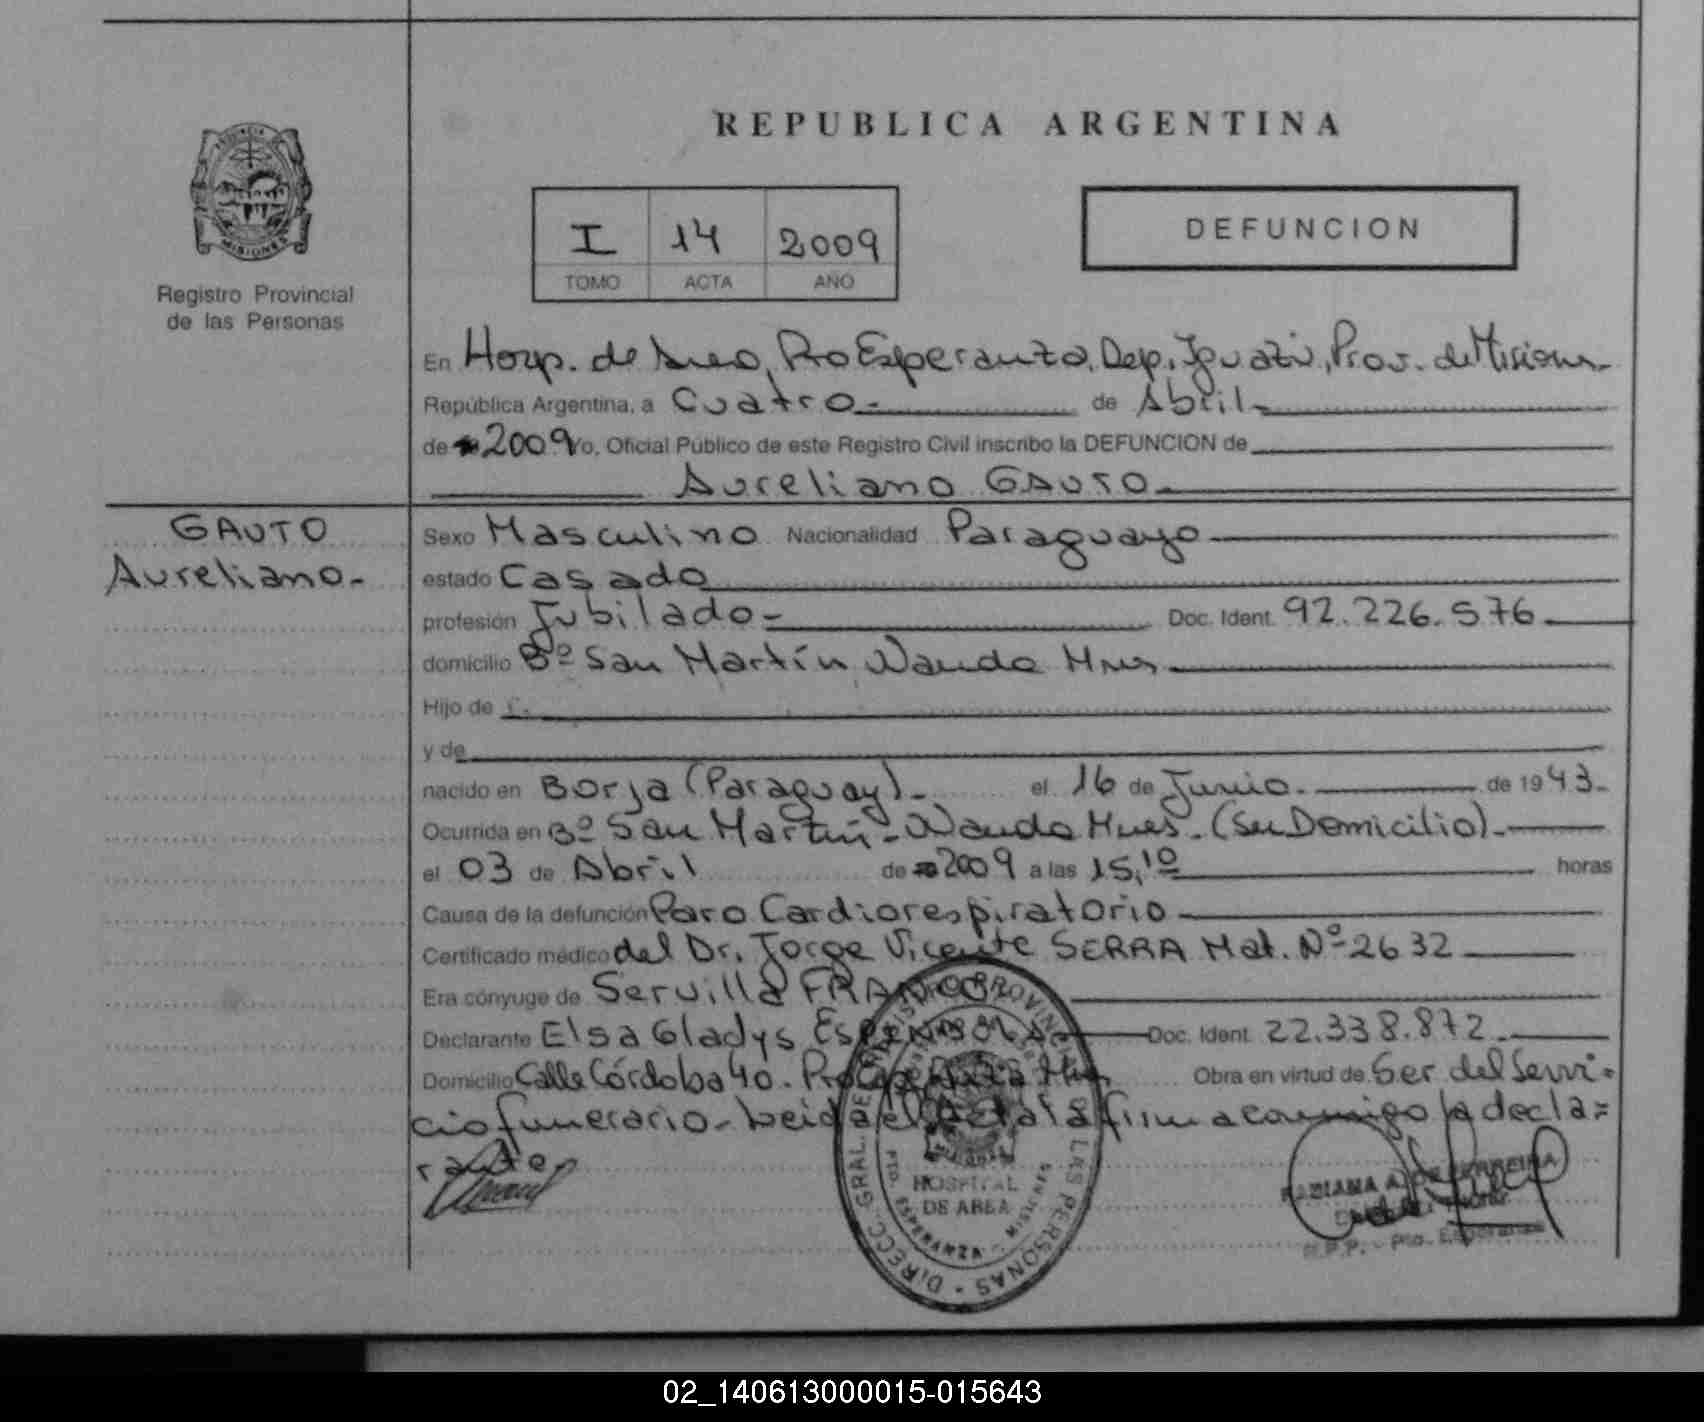 REPUBLICA ARGENTINA
PROVINCIA
MISIONES
Registro Provincial
de las Personas
I 14 2009
TOMO ACTA AÑO
DEFUNCION
En Hosp. de Area, Pto Esperanza, Dep. Iguazú, Prov. de Misiones-
República Argentina, a Cuatro- de Abril-
de 2009 Yo, Oficial Público de este Registro Civil inscribo la DEFUNCION de
Aureliano GAUTO-
GAUTO
Aureliano.-
Sexo Masculino Nacionalidad Paraguayo-
estado Casado
profesión Jubilado- Doc. Ident. 92.226.576
domicilio Bº San Martín, Wanda Mnes
Hijo de
y de
nacido en Borja (Paraguay)- el 16 de Junio.- de 1943.-
Ocurrida en Bº San Martín- Wanda Mnes- (Su Domicilio)-
el 03 de Abril de 2009 a las 15,10 horas
Causa de la defunción Paro Cardiorespiratorio-
Certificado médico del Dr. Jorge Vicente SERRA Mat. Nº 2632
Era cónyuge de Servilla FRANCO
Declarante Elsa Gladys Doc. Ident. 22.338.872-
Domicilio Calle Córdoba 40. Pto Esperanza Mnes Obra en virtud de Ser del Servi=
cio funerario- Leida el Acta la firma conmigo la decla=
rante
DIRECC. GRAL. DEL REGISTRO PROVINCIAL DE LAS PERSONAS
HOSPITAL
DE AREA
PTO. ESPERANZA - MISIONES
FABIANA A. DE FERREIRA
R.P.P. - Pto. Esperanza
02_140613000015-015643